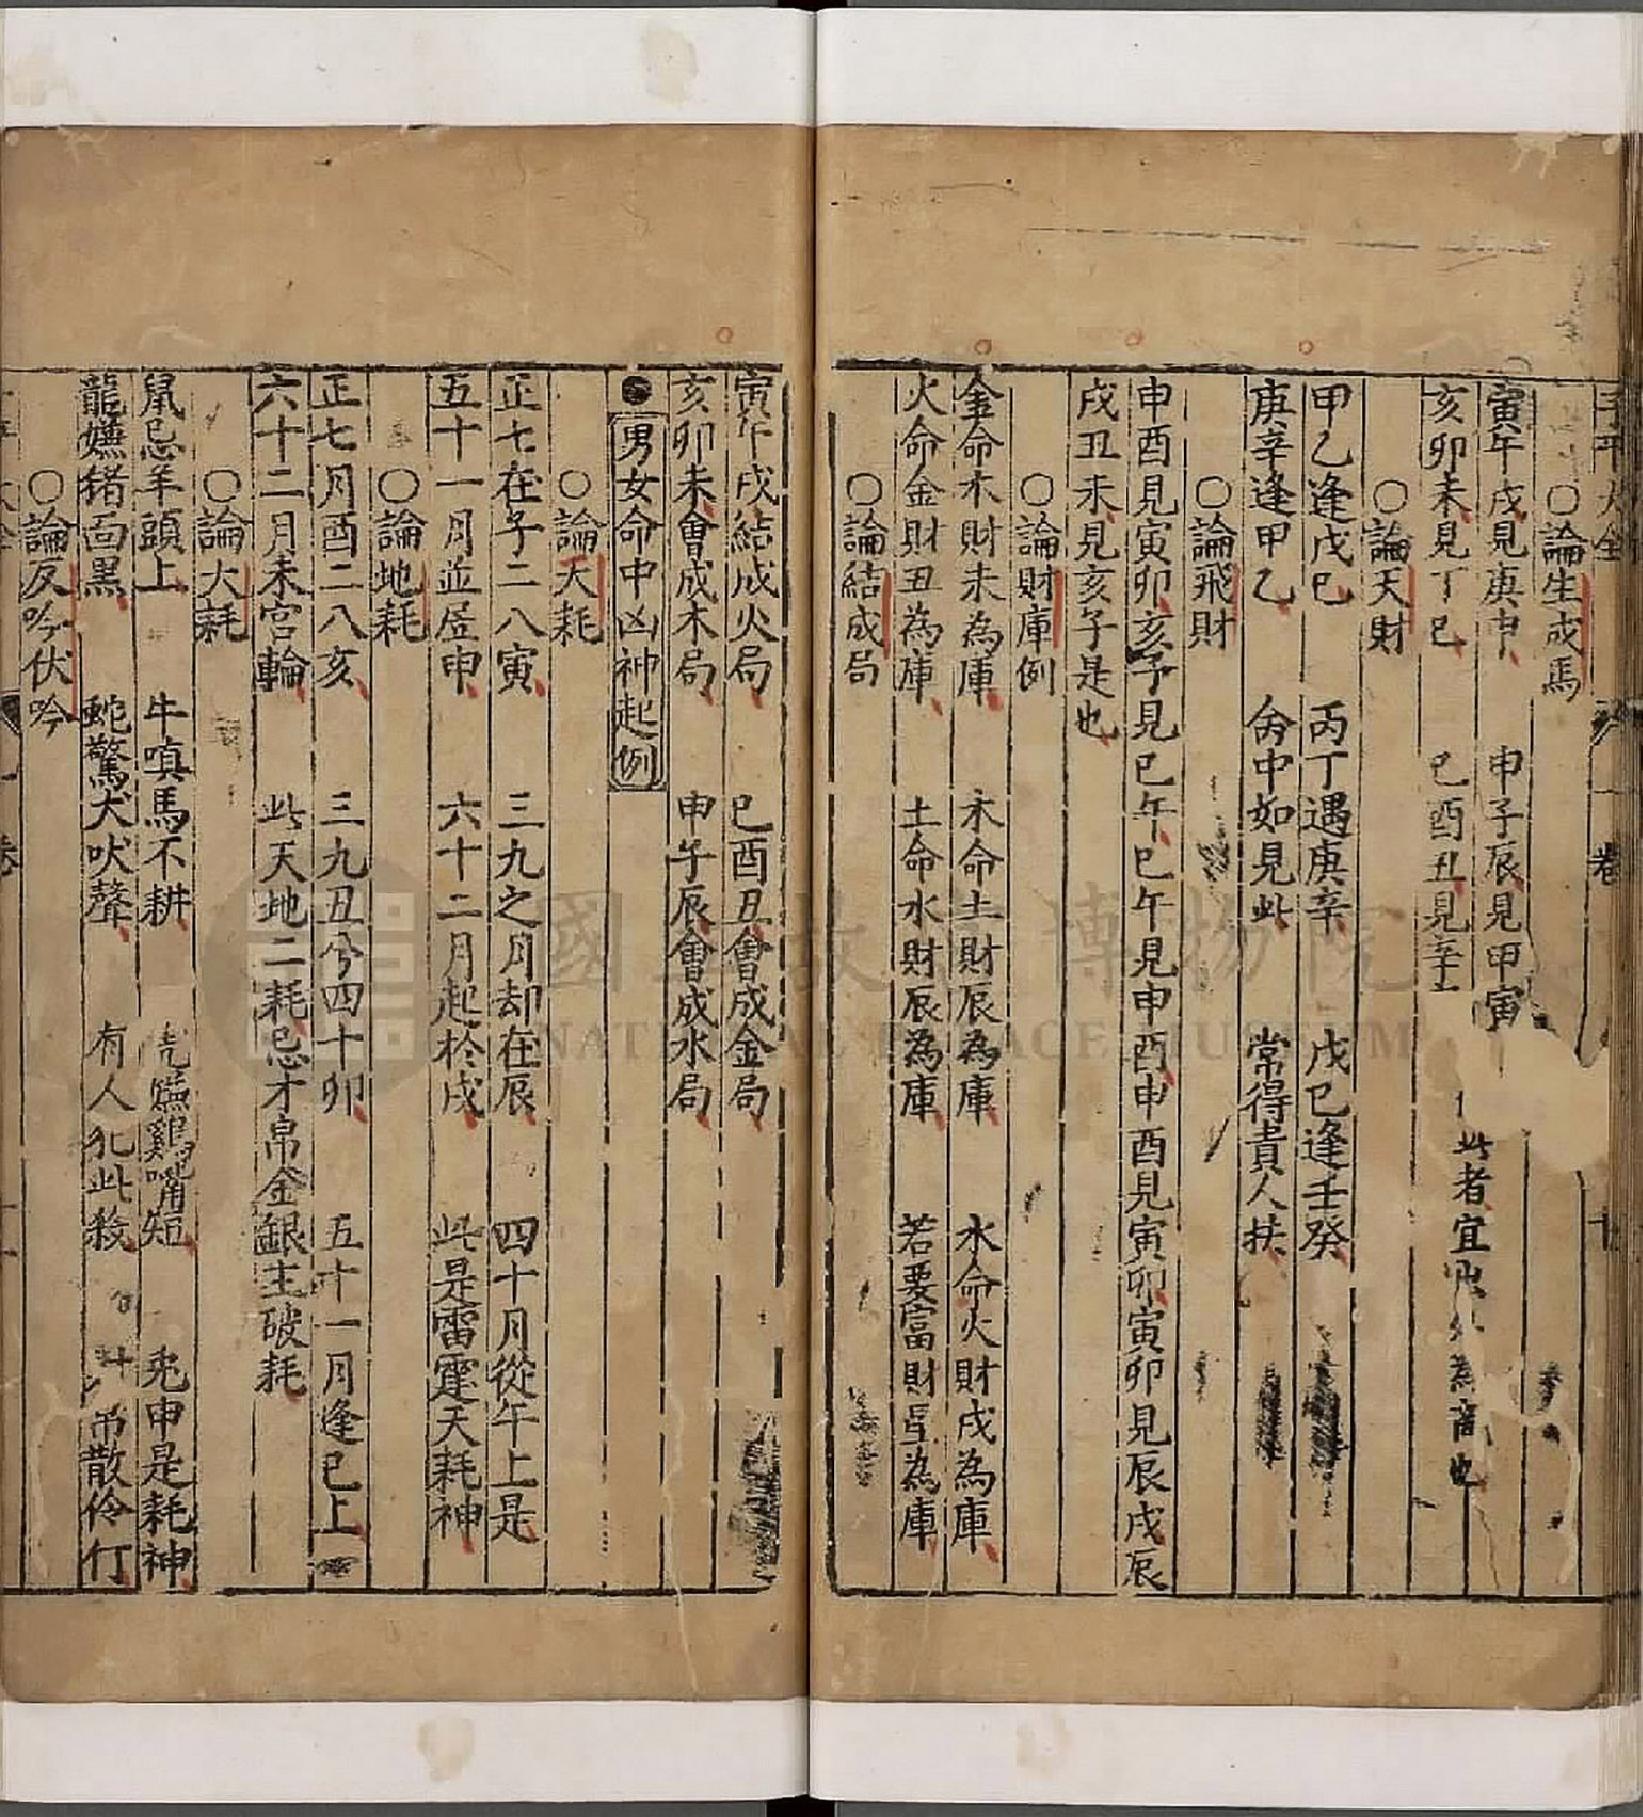 〇論生成馬
寅午戌見庚申 申子辰見甲寅
亥卯未見丁巳 巳酉丑見辛 此者宜 為商也
〇論天財
甲乙逢戊巳 丙丁遇庚辛 戊巳逢壬癸
庚辛逢甲乙 命中如見此 常得貴人扶
〇論飛財
申酉見寅卯亥子見巳午巳午見申酉申酉見寅卯寅卯見辰戌辰
戌丑未見亥子是也
〇論財庫例
金命木財未為庫 木命土財辰為庫 水命火財戌為庫
火命金財丑為庫 土命水財辰為庫 若要富財星為庫
〇論結成局
寅午戌結成火局 巳酉丑會成金局
亥卯未會成木局 申子辰會成水局
男女命中凶神起例
〇論天耗
正七在子二八寅 三九之月却在辰 四十月從午上是
五十一月並居申 六十二月起於戌 此是雷霆天耗神
〇論地耗
正七月酉二八亥 三九丑兮四十卯 五十一月逢巳上
六十二月未宮輪 此天地二耗忌才帛金銀主破耗
〇論大耗
鼠忌羊頭上 牛嗔馬不耕 虎嫌鷄嘴短 兎申是耗神
龍嫌猪面黑 蛇驚犬吠聲 有人犯此殺 散伶仃
〇論反吟伏吟
國立故宮博物院
NATIONAL PALACE MUSEUM